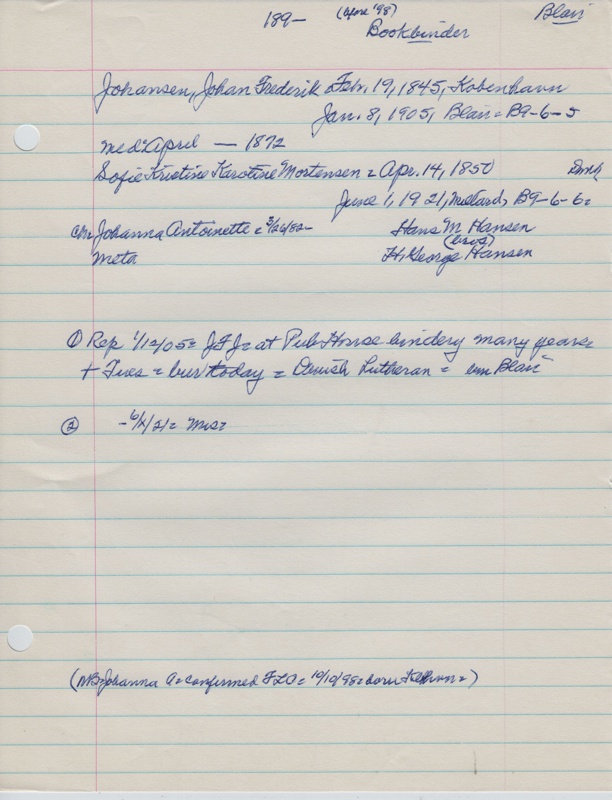 189- (before '98) Blair
Bookbinder
Johansen, Johan Frederik = Feb. 19, 1845, Kobenhavn
Jan. 8, 1905, Blair = B9-6-5
med = April — 1872
Sofie Kristine Karoline Mortensen = Apr. 14, 1850 Dmk
June 1, 1921, B9-6-6=
Ch = Johanna Antoinette = 3/26/82- Hans M Hansen
(bros)
Meta H. George Hansen
① Rep 1/12/05 = JFJ = at Pub House bindery many years =
+ Tues = bur today = Danish Lutheran = cem Blair
② - 6/2/21 = Mrs =
(NB = Johanna A = confirmed FLC = 10/19/98 = born =)